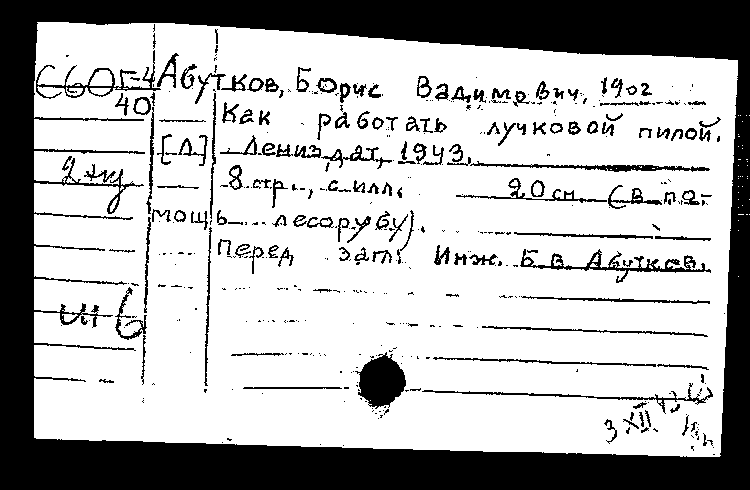 С60 Г-4/40
Абутков, Борис Вадимович, 1902
Как работать лучковой пилой.
[Л] Лениздат, 1943.
8 стр., с илл. 20 см. (В по-
мощь лесорубу).
Перед загл: Инж. Б. В. Абутков.
2 экз
ш б
3 XII 43